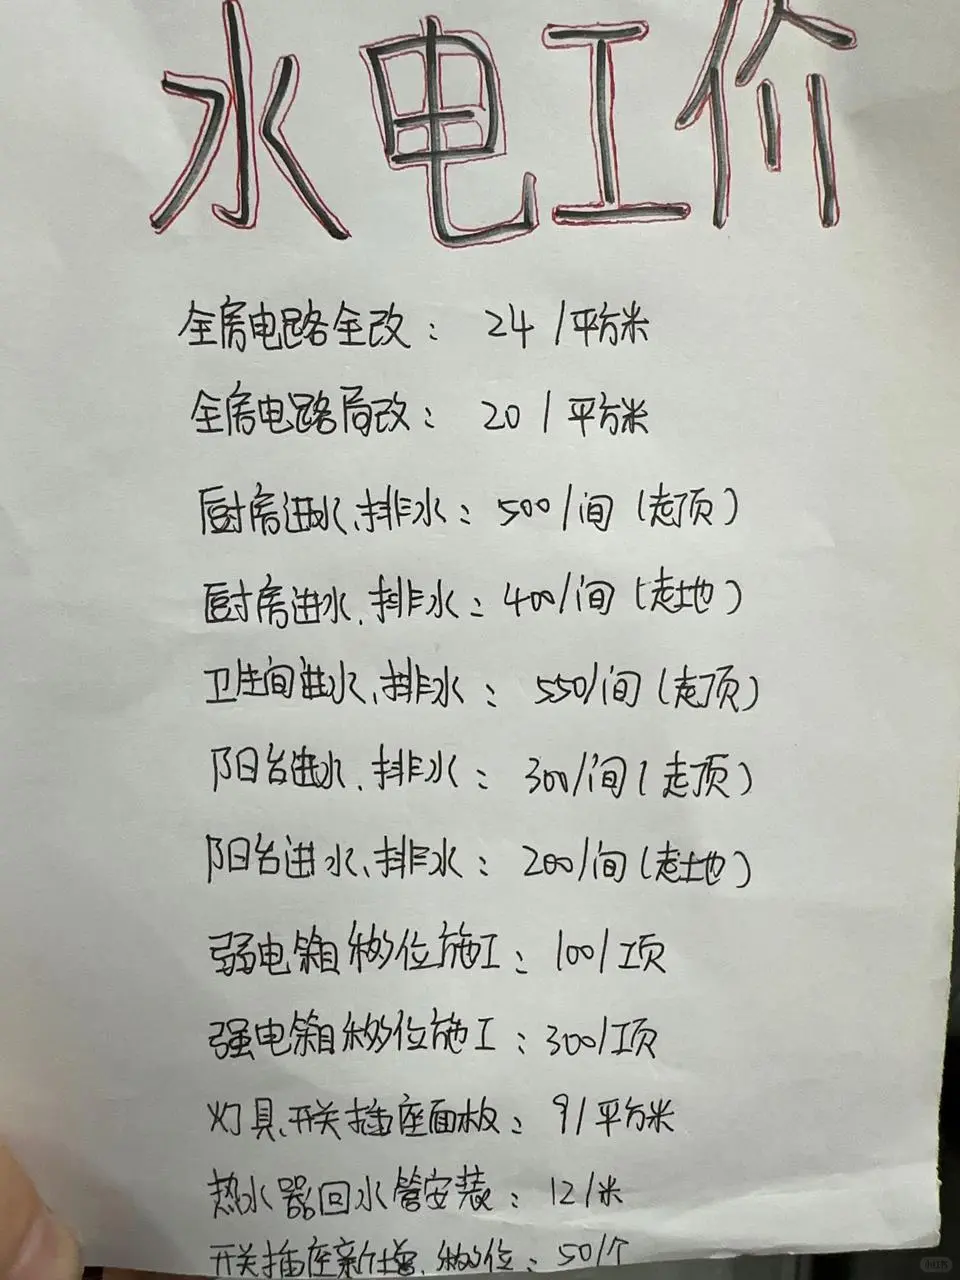 水电工价
全房电路全改：24/平方米
全房电路局改：20/平方米
厨房进水、排水：500/间（走顶）
厨房进水、排水：400/间（走地）
卫生间进水、排水：550/间（走顶）
阳台进水、排水：300/间（走顶）
阳台进水、排水：200/间（走地）
弱电箱移位施工：100/项
强电箱移位施工：300/项
灯具、开关插座面板：9/平方米
热水器回水管安装：12/米
开关插座新增、移位：50/个
小红书